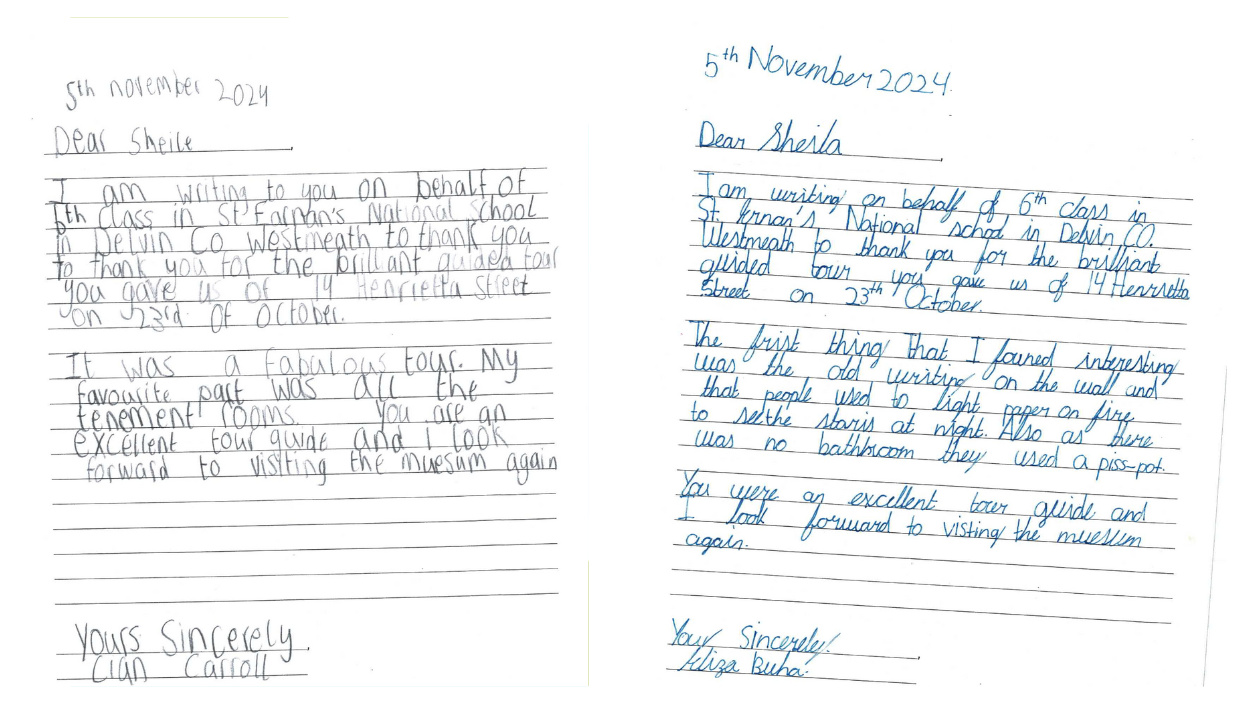 5th november 2024
Dear Sheile
I am writing to you on behalf of
6th class in St Farnan's National School
in Delvin Co Westmeath to thank you
to thank you for the brillant guided tour
you gave us of 14 Henrietta Street
on 23rd of October.
It was a fabulous tour. My
favourite part was all the
tenement rooms. You are an
excellent tour guide and I look
forward to visiting the muesum again
Yours Sincerely
Cian Carroll
5th November 2024.
Dear Sheila
I am writing on behalf of 6th class in
St. Ernan's National school in Delvin CO.
Westmeath to thank you for the brillant
guided tour you gave us of 14 Henrietta
Street on 23th October.
The frist thing that I founed interesting
was the old writing on the wall and
that people used to light paper on fire
to see the staris at night. Also as there
was no bathroom they used a piss-pot.
You were an excellent tour guide and
I look forward to visting the muesum
again.
Your Sincerely!
Buha.